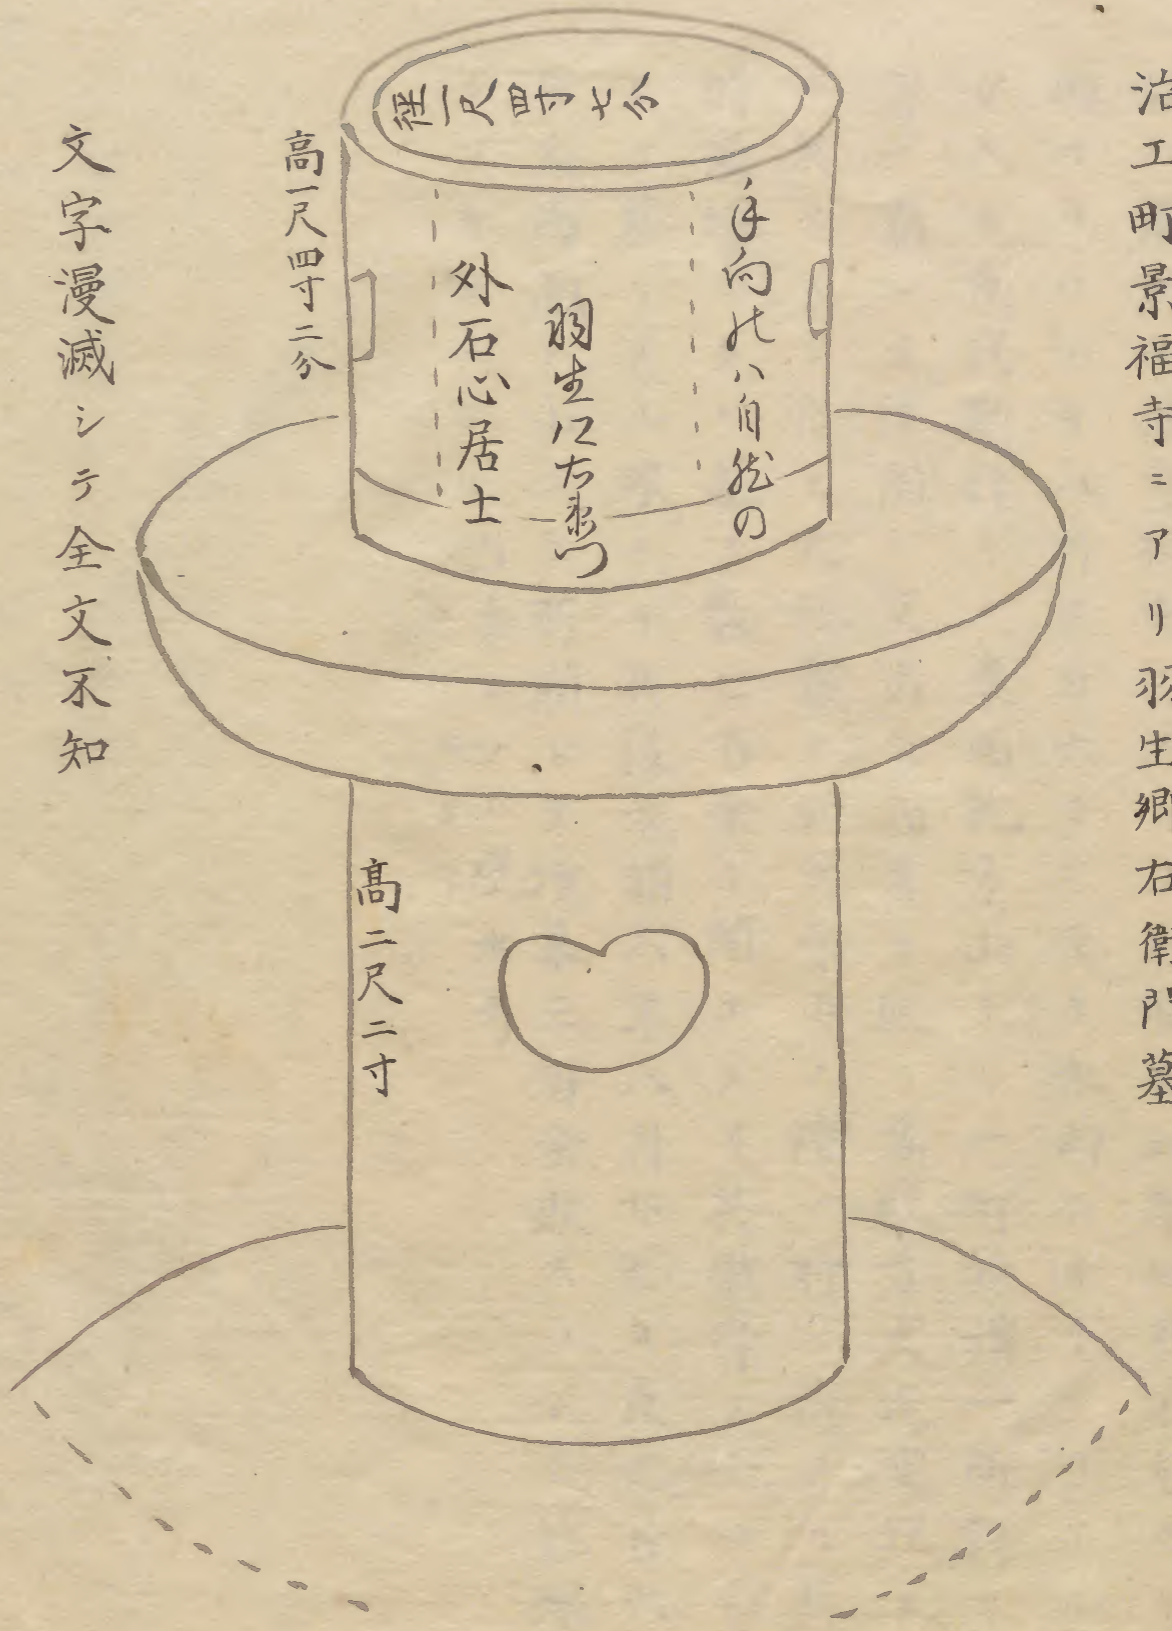 冶工町景福寺ニアリ羽生郷右衛門墓
径一尺四寸七分
手向のハ自然の
羽生仁右衛門
外石心居士
高一尺四寸二分
高二尺二寸
文字漫滅シテ全文不知